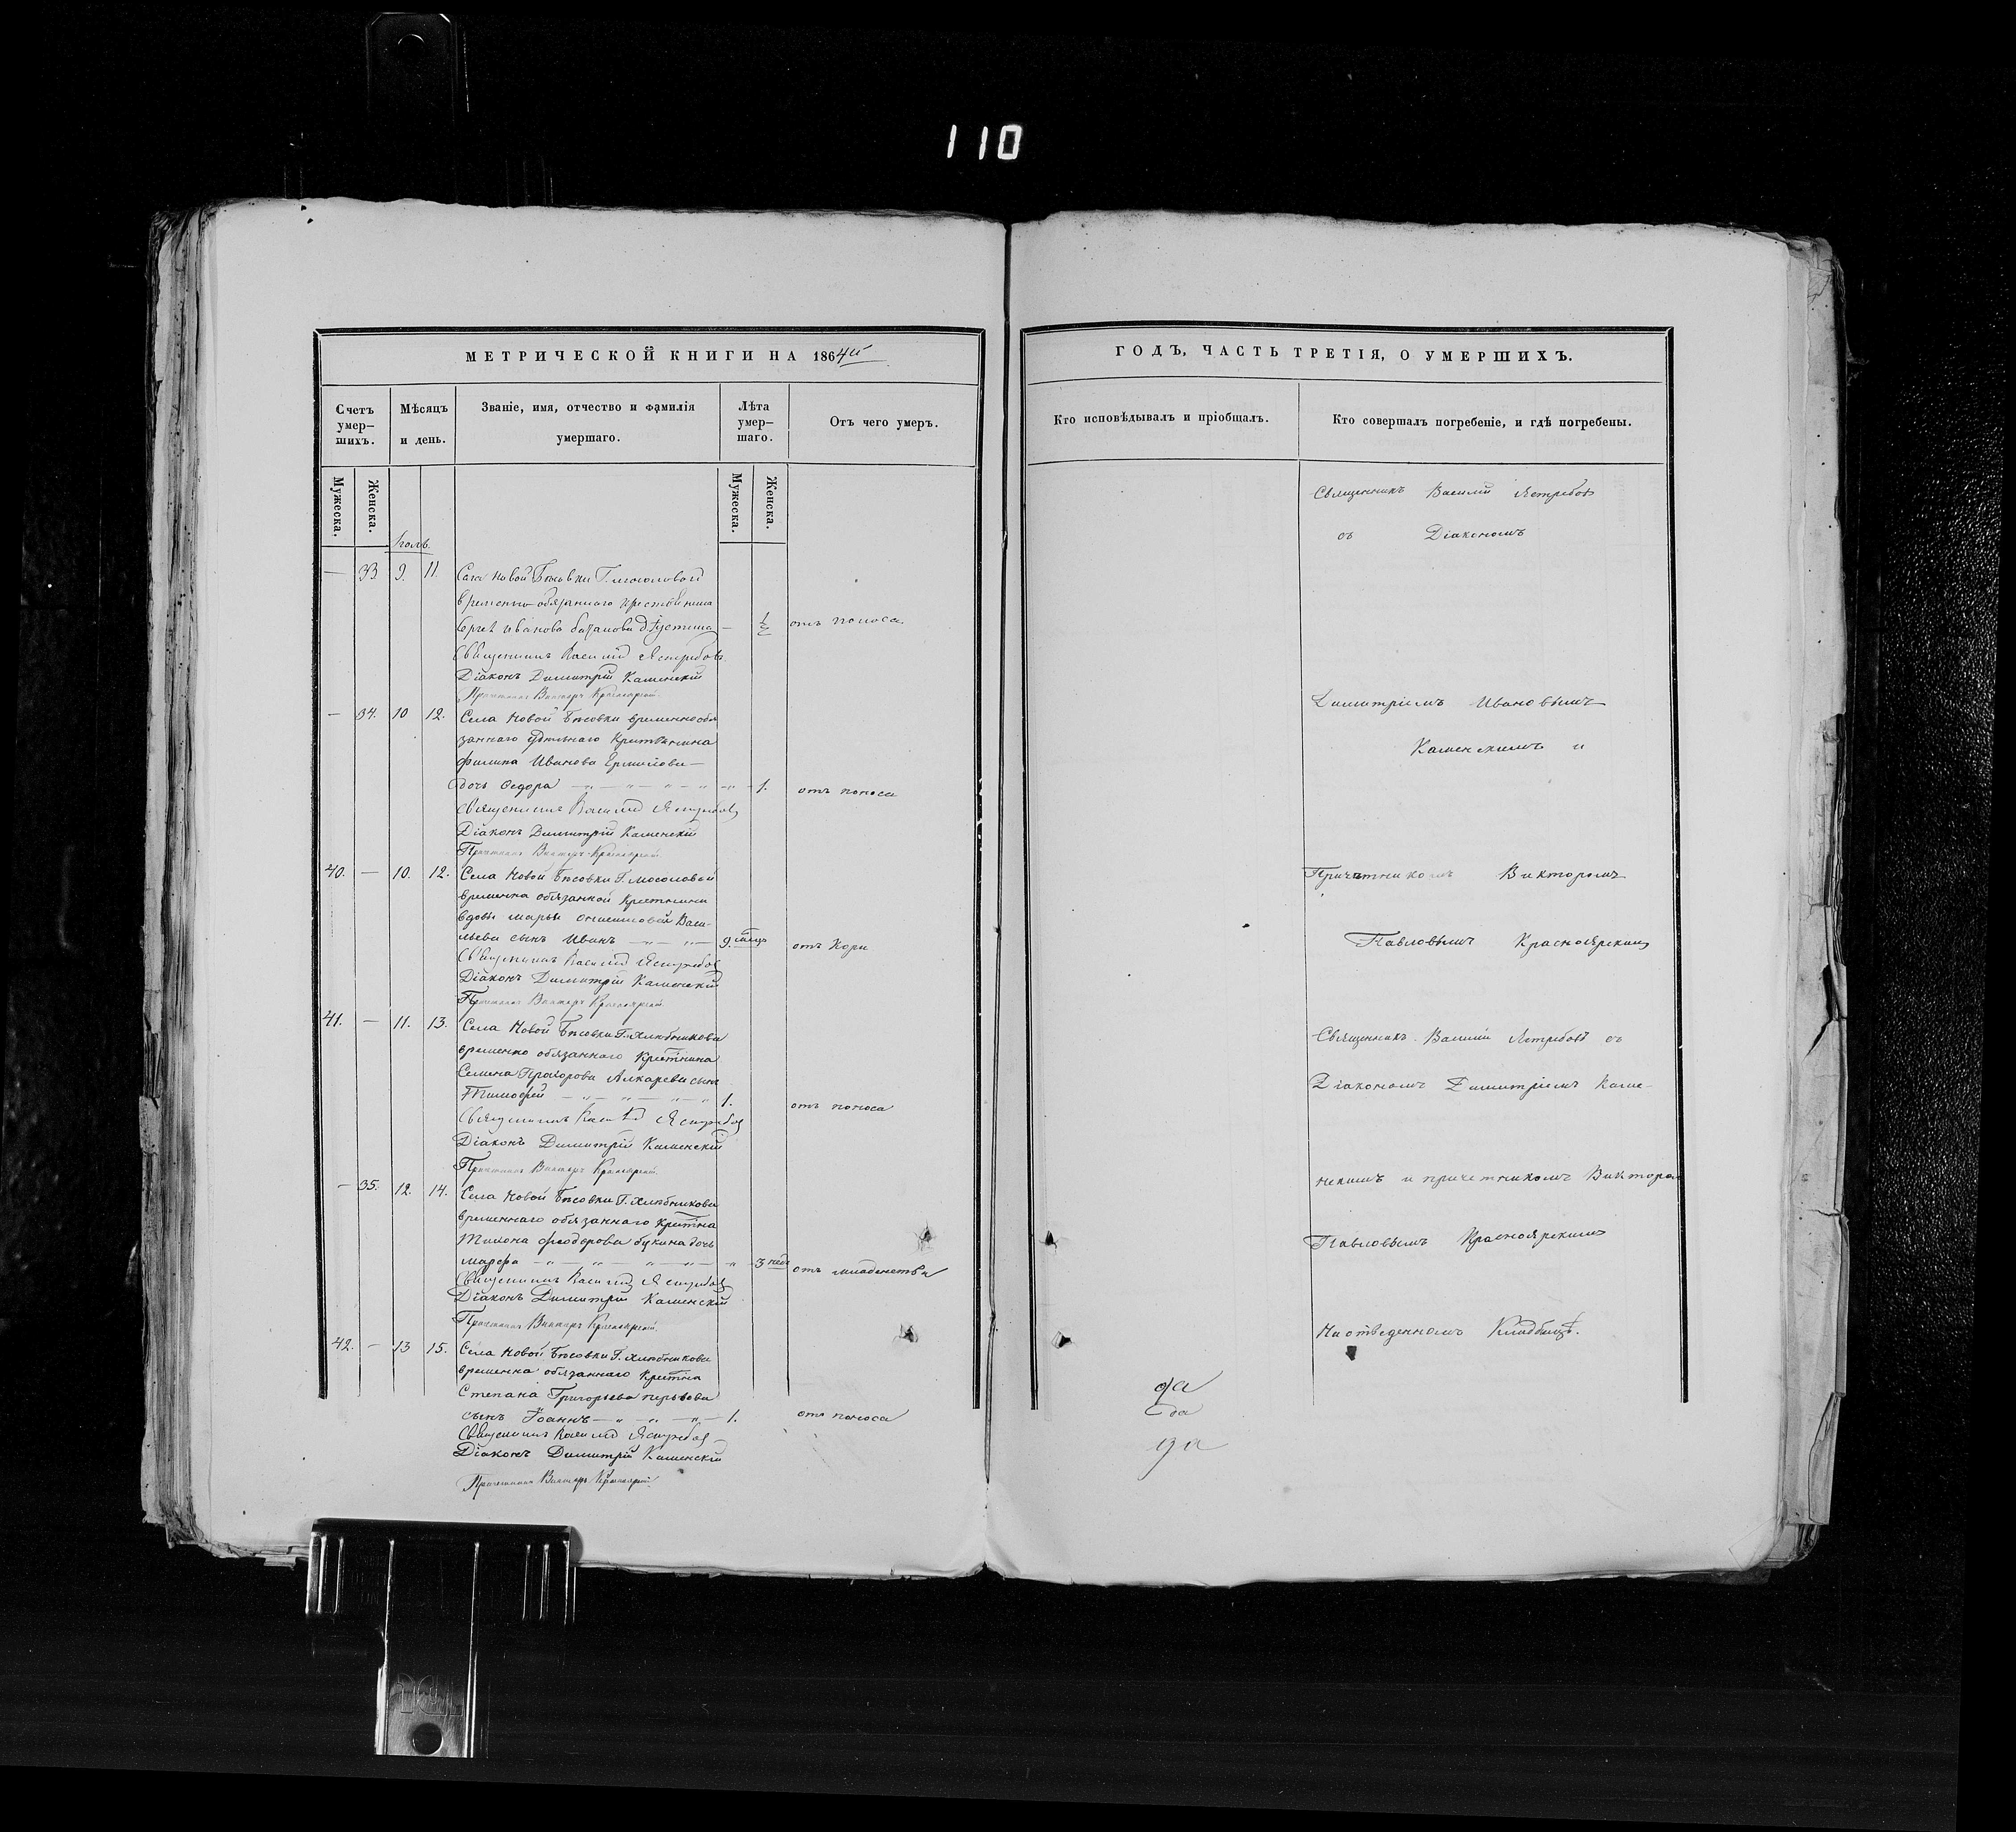 110
МЕТРИЧЕСКОЙ КНИГИ НА 1864й
Счетъ умер-шихъ.
Мѣсяцъ и день.
Званіе, имя, отчество и фамилія умершаго.
Лѣта умер-шаго.
Отъ чего умеръ.
Мужеска.
Женска.
Мужеска.
Женска.
Іюль.
— 33 9. 11. Села Новой Бѣсовки Г.
временно обязаннаго
Сергѣя Иванова — 1/2 отъ поноса.
Священникъ Василій Ястребовъ
Діаконъ Димитрій Каменскій
Причетникъ Викторъ Красноярскій.
— 34. 10 12. Села Новой Бѣсовки временнообя
заннаго
Филипа Иванова Ермилова —
дочь Ѳедора — „ — „ — „ — „ — 1. отъ поноса
Священникъ Василій Ястребовъ
Діаконъ Димитрій Каменскій
Причетникъ Викторъ Красноярскій.
40. — 10. 12. Села Новой Бѣсовки Г. Мосоловой
временна обязанной
вдовы Марьи Васи-
льева сынъ Иванъ — „ — „ — 9. мѣцъ отъ Кори
Священникъ Василій Ястребовъ
Діаконъ Димитрій Каменскій
Причетникъ Викторъ Красноярскій.
41. — 11. 13. Села Новой Бѣсовки Г. Хлѣбникова
временно обязаннаго
Семена Прохорова сынъ
Тимофей — „ — „ — „ — „ 1. отъ поноса
Священникъ Василій Ястребовъ
Діаконъ Димитрій Каменскій
Причетникъ Викторъ Красноярскій.
— 35. 12. 14. Села Новой Бѣсовки Г. Хлѣбникова
временнаго обязаннаго
Тихона Феодорова Букина дочь
Марфа — „ — „ — „ — „ — „ — 3 нед отъ младенства
Священникъ Василій Ястребовъ
Діаконъ Димитрій Каменскій
Причетникъ Викторъ Красноярскій.
42. — 13 15. Села Новой Бѣсовки Г. Хлѣбникова
временна обязаннаго
Степана Григорьева
сынъ Іоаннъ — „ — „ — „ — 1. отъ поноса
Священникъ Василій Ястребовъ
Діаконъ Димитрій Каменскій
Причетникъ Викторъ Красноярскій.
ГОДЪ, ЧАСТЬ ТРЕТІЯ, О УМЕРШИХЪ.
Кто исповѣдывалъ и пріобщалъ.
Кто совершалъ погребеніе, и гдѣ погребены.
Священникъ Василій Ястребовъ
съ Діакономъ
Димитріемъ Ивановымъ
Каменскимъ и
Причетникомъ Викторомъ
Павловымъ Красноярскимъ
Священникъ Василій Ястребовъ съ
Діакономъ Димитріемъ Каме-
нскимъ и причетникомъ Викторомъ
Павловымъ Красноярскимъ
На отведенномъ Кладбищѣ.